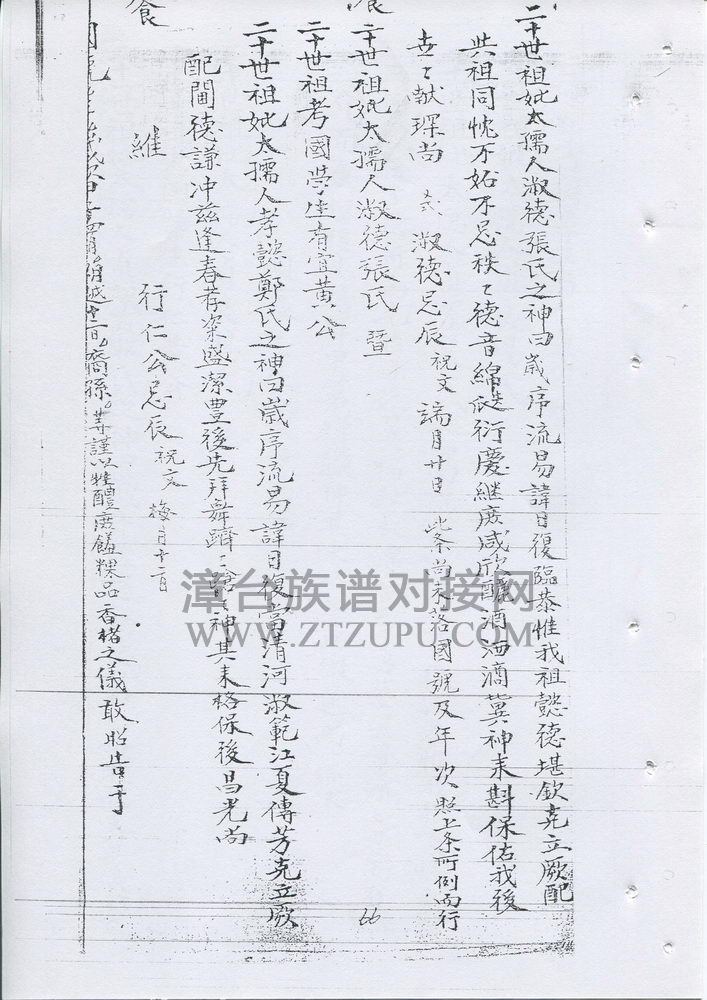 二十世祖妣太孺人淑德張氏之神曰歲序流易諱日復臨恭惟我祖懿德堪欽克立厥配
共祖同忱不妬不忌秩〻德音綿瓞衍慶繼廣咸欣釃酒洒滴冀神來斟保佑我後
世〻獻琛尚 淑德忌辰祝文 端月廿日 此条尚未落國號及年次照上条所例而行
二十世祖妣太孺人淑德張氏暨
二十世祖考國學生宜黃公
二十世祖妣太孺人孝懿鄭氏之神曰歲序流易諱日復當清河淑範江夏傳芳克立厥
配閫德謙冲茲逢春孝粢盛潔豊後先拜舞蹌〻神其来格保後昌光尚
食
行仁公忌辰祝文 梅月十二日
維
越 日裔孫 等謹以牲醴庶饈粿品香楮之儀敢昭告于
66
漳台族谱对接网
WWW.ZTZUPU.COM